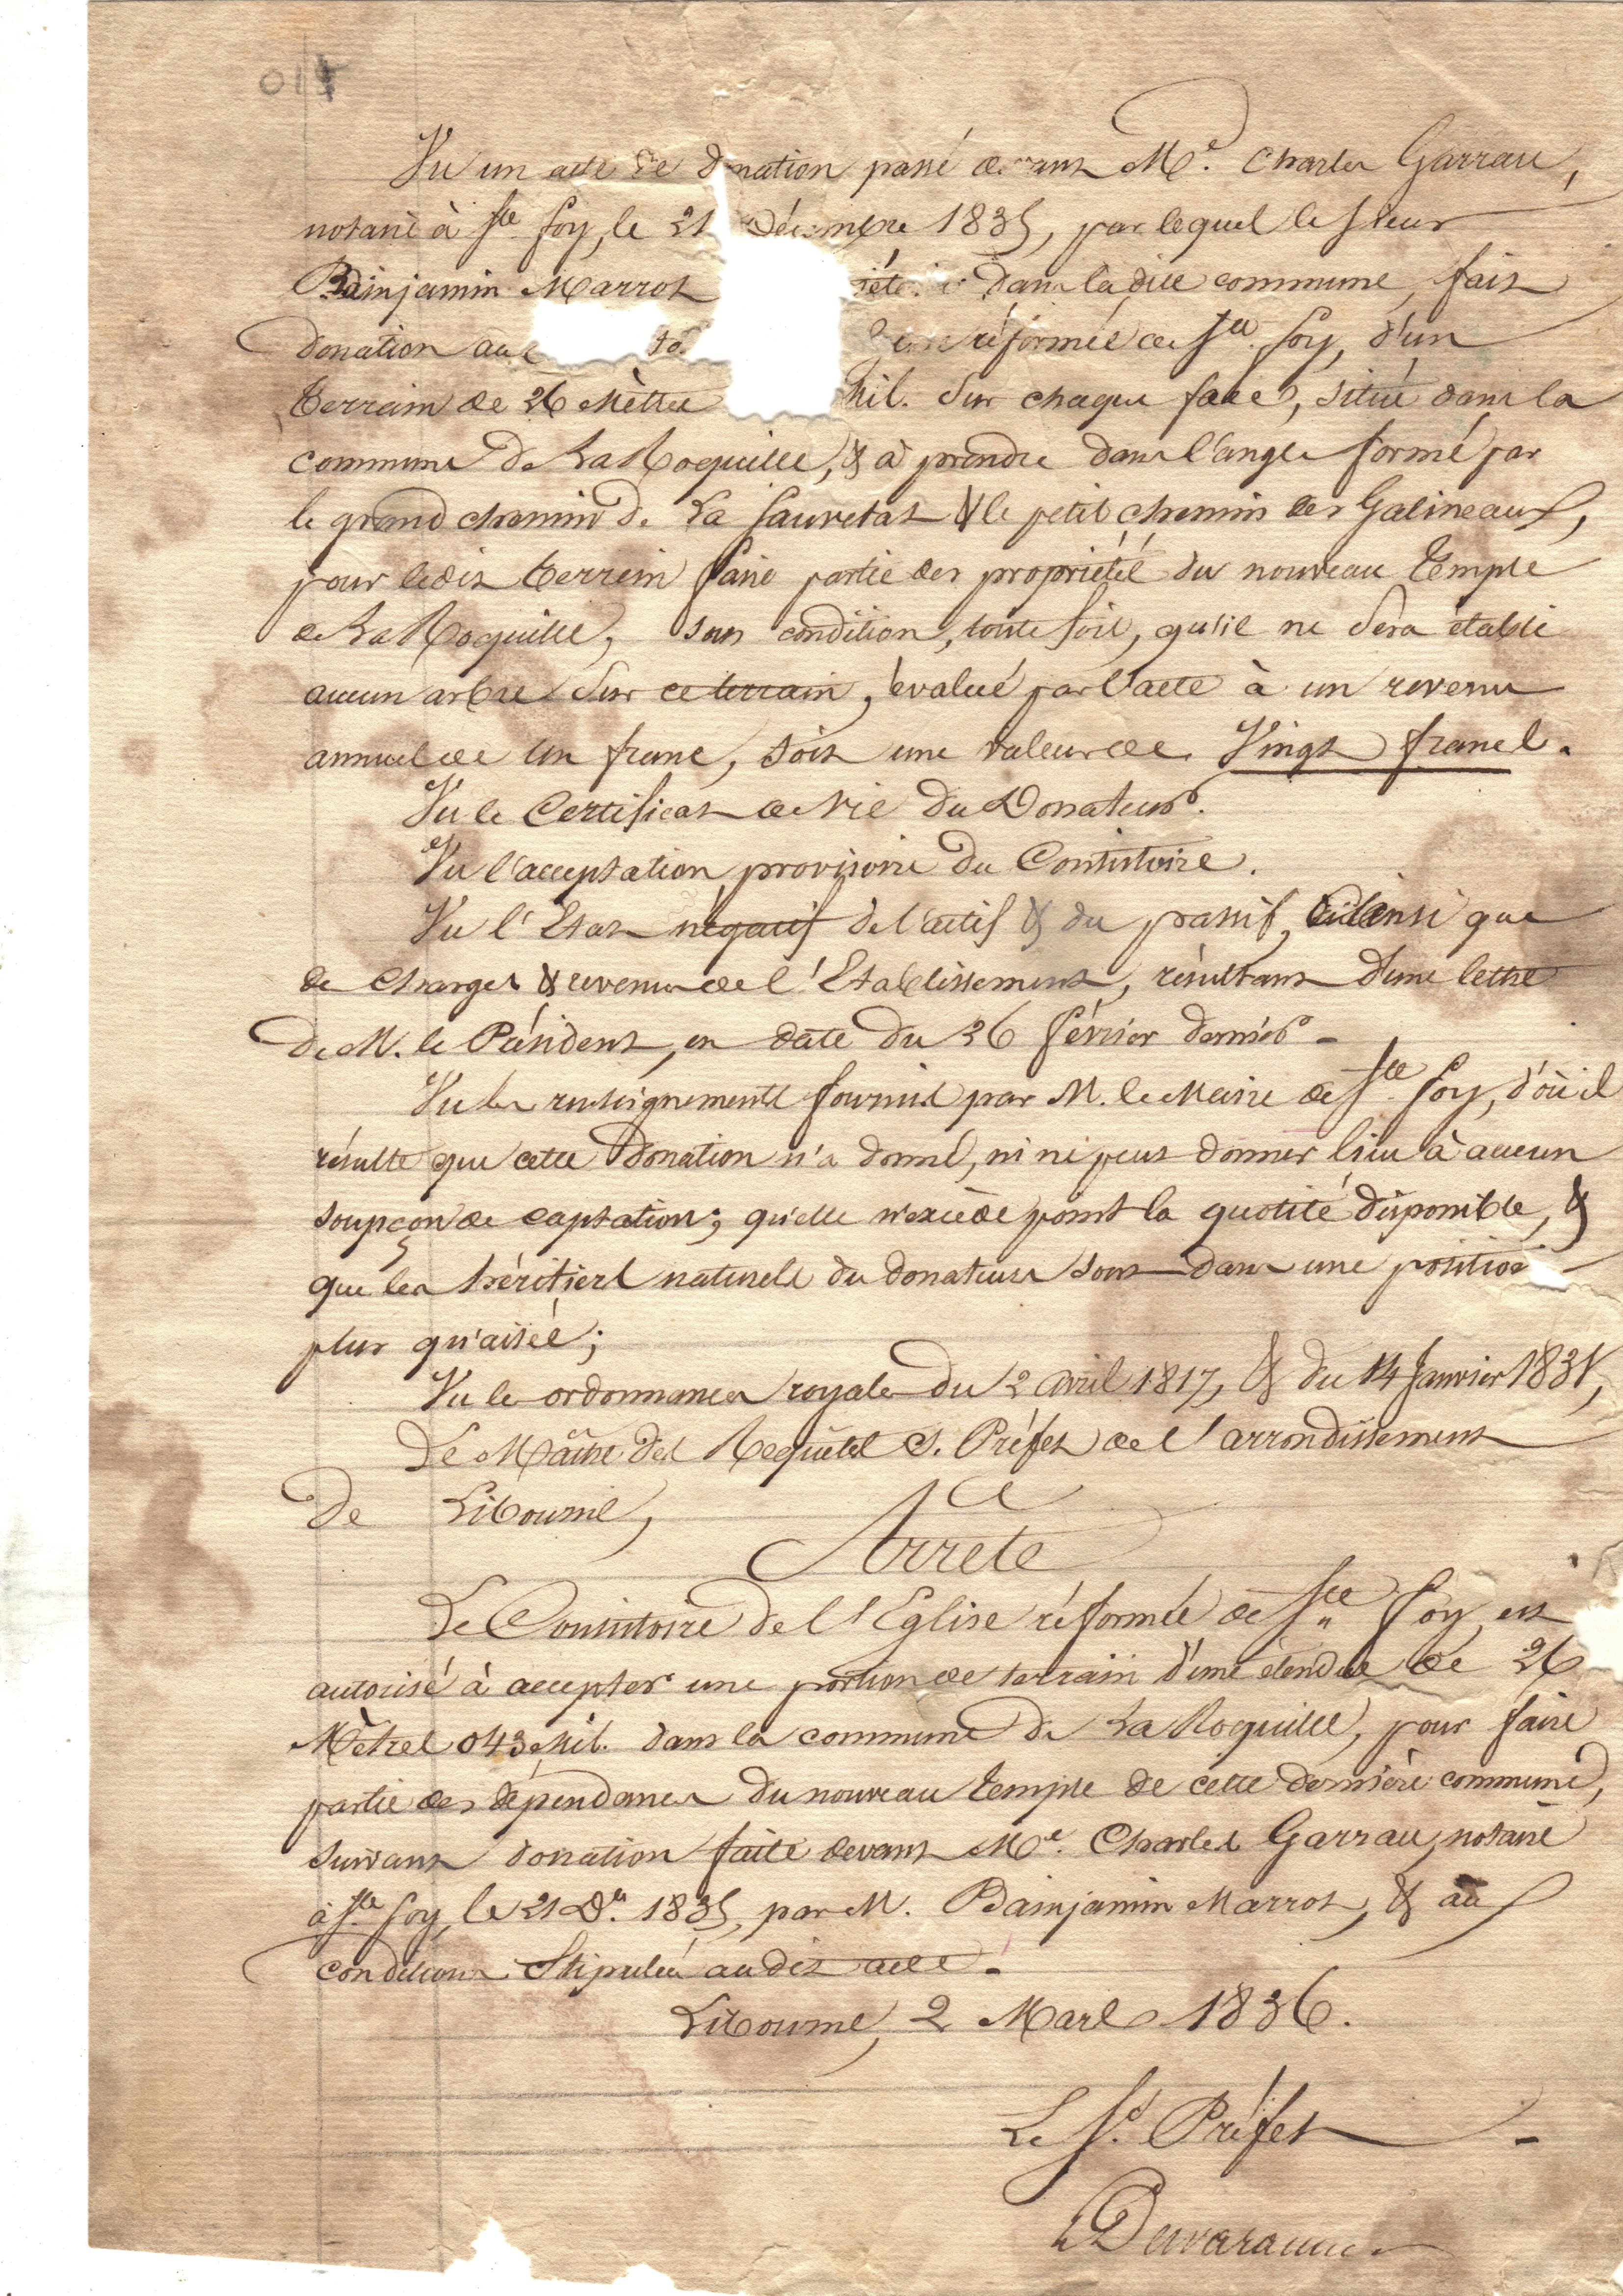 Vu un acte de donation passé devant Me. Charles Garrau,
notaire à Ste Foy, le 21 Décembre 1835, par lequel le Sieur
Bainjamin Marrot dans la dite commune, fait
donation au réformée de Ste. Foy, d'un
terrain de 26 Mètres Mil. sur chaque face, situé dans la
commune de La Roquille, & à prendre dans l'angle formé par
le grand chemin de La Sauvetat & le petit chemin des Galineaux,
pour ledit terrein faire partie des propriétés du nouveau temple
de La Roquille, sous condition, toute fois, qu'il ne sera établi
aucun arbre sur ce terrain, évalué par l'acte à un revenu
annuel de un franc, soit une valeur de Vingt francs.
Vu le Certificat de vie du Donateur.
Vu l'acceptation provisoire du Consistoire.
Vu l'Etat négatif de l'actif & du passif, ainsi que
de charges & revenus de l'Etablissement, résultant d'une lettre
de M. le Président, en date du 26 février dernier -
Vu les renseignements fournis par M. le Maire de Ste. Foy, d'où il
résulte que cette donation n'a donné, ni ne peut donner lieu à aucun
soupçon de captation; qu'elle n'excède point la quotité disponible, &
que les héritiers naturels du donateur sont dans une position
plus qu'aisée;
Vu les ordonnances royales du 2 avril 1817, & du 14 Janvier 1831,
Le Maître des Requêtes S. Préfet de l'arrondissement
de Libourne,
Arrête
Le Consistoire de l'Eglise réformée de Ste Foy, est
autorisé à accepter une portion de terrain d'une étendue de 26
Mètres 043 Mil. dans la commune de La Roquille, pour faire
partie des dépendances du nouveau temple de cette dernière commune,
suivant donation faite devant Me. Charles Garrau, notaire
à Ste Foy, le 21 Dre. 1835, par M. Bainjamin Marrot, & aux
conditions stipulées au dit acte.
Libourne, 2 Mars 1836.
Le S. Préfet